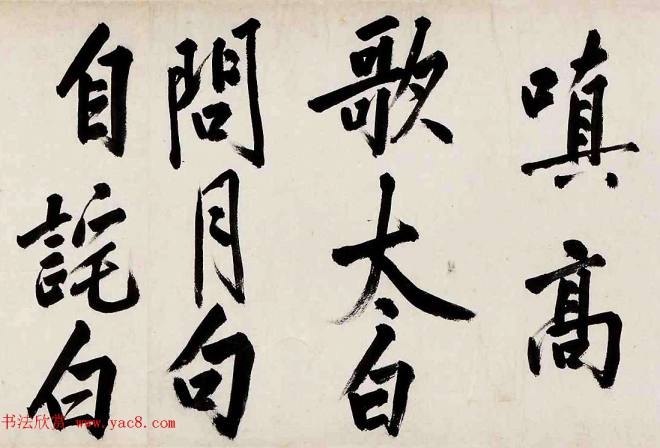 嗔髙
歌太白
問月句
自詫白
书法欣赏www.yac8.com